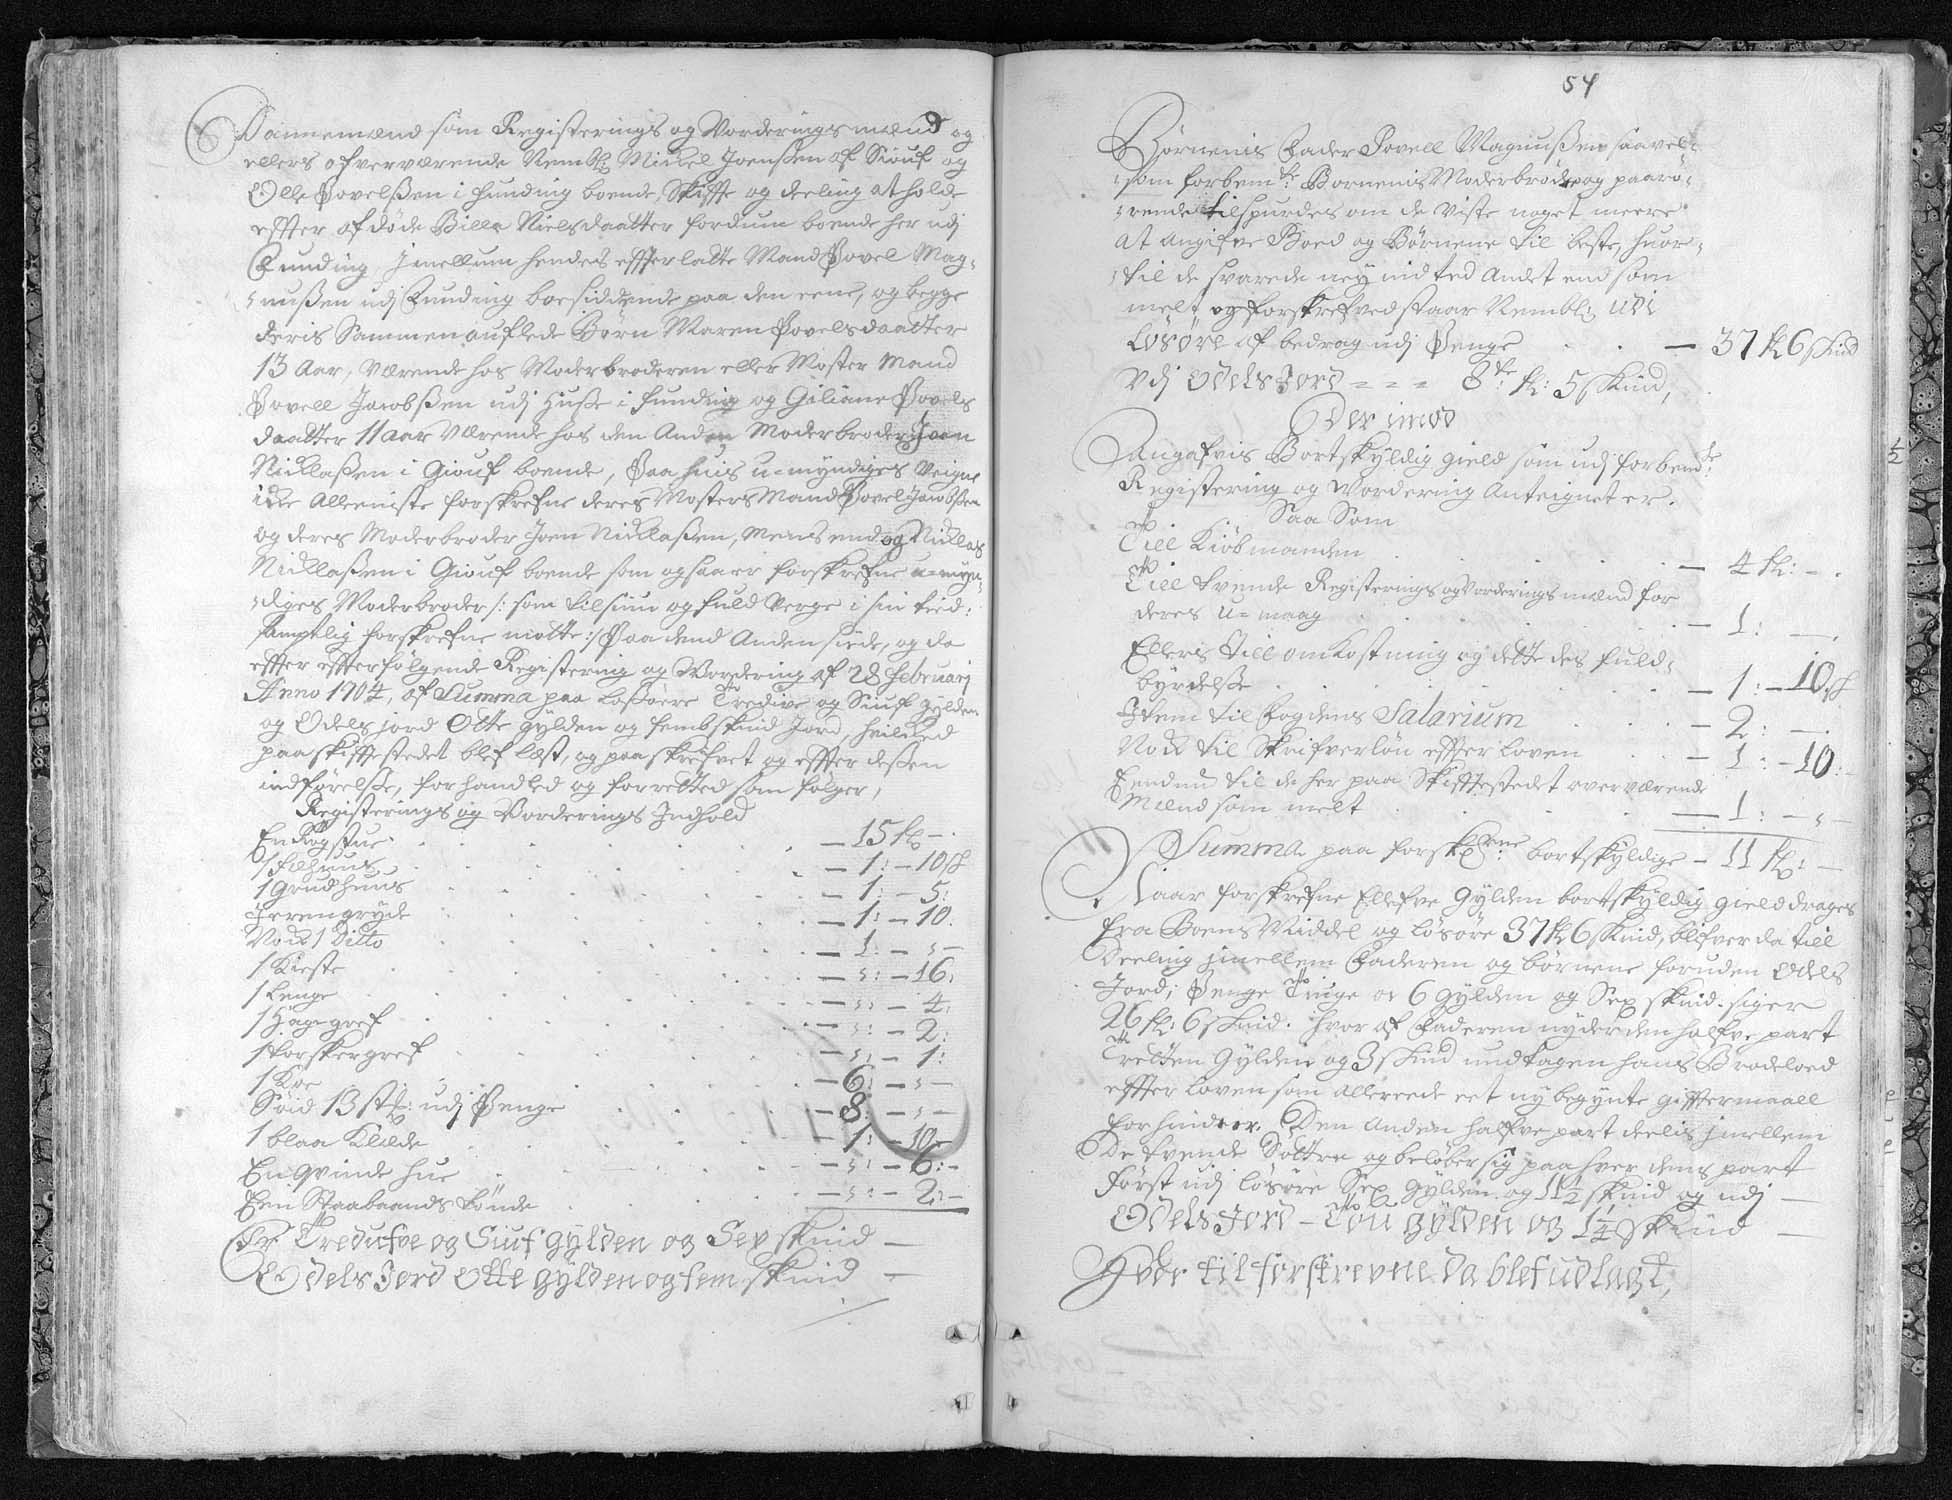 Dannemænd som Registerings og Vorderings mænd og
ellers ofverværende Nembl: Mickel Joenßen af Siouf og
Olle Povelßen i Funding boende, Skifte og deeling at holde
effter afdøde Billa Nielsdaatter fordum boende her udj
Funding Jmellum hendes effterlatte Mand Povel Mag-
nußen udj Funding boesiddende paa den eene, og begge
deris Sammen auflede Børn Maren Povelsdaatter
13 Aar, værende hos Moderbroderen eller Moster Mand
Povell Jacobßen udj Huße i Funding og Giliane Povels
daatter 11 aar værende hos den Anden Moderbroder Joen
Nicklaßen i Giouf boende, Paa huis u-myndiges Veigne
icke Alleeniste forskrefne deres Mosters Mand Povel Jacobßen
og deres Moderbroder Joen Nicklaßen, mens end og Nicklas
Nicklaßen i Giouf boende som og saa er forskrefne u-myn-
diges Moderbroder /: som til siun og fuld Verge i sin tiid:
samptlig forskrefne møtte :/ Paa dend Anden siide, og da
effter effterfølgende Registering og Vordering af 28 Februarj
Anno 1704, af Summa paa Løßøere Tredive og Siuf gylden
og Odels jord Otte gylden og femb skind Jord, hvilcked
paa skifftestedet blef læst, og paaskrefvet og effter deßen
indførelße, forhandled og forretted som følger,
Registerings og Vorderings Indhold
En Røgstue - 15 fl -
1 fæehuus - 1: - 10 s
1 Grudhuus - 1: - 5:
Jerengryde - 1: - 10:
Nock 1 Ditto - 1: - s -
1 Kieste - s: - 16:
1 Senge - s: - 4:
1 Hage gref - s: - 2:
1 torskergref - s: - 1:
1 Koe - 6: - s -
Søid 13 stk: udj Penge - 8: - s -
1 blaa Klæde - 1: - 10 -
En qvinde hue - s: - 6: -
Een Staabaands tønde - s: - 2: -
Er Tredufve og Siuf gylden og Sex skind -
Odels Jord Otte gylden og fem skind -
54
Børnenis Fader Povell Magnußen saavel-
som forbemte: Børnenis Moderbrødre og paarø-
rende tilspurdes om de viste noget meere
at angifve Boed og Børnene til beste, huor-
til de svarede ney indted Andet end som
melt og forskrefved staar Nembl: udi
Løsøre af bedrag udj Penge - 37 fl 6 skind
Udj Odels Jord = = = 8te: fl: 5 skind,
Der imod
Angafvis Bortskyldig gield som udj forbemte:
Registering og Vordering Anteignet er.
Saa Som
Till Kiøbmanden - 4 fl: - .
Till tvende Registerings og Vorderings mænd for
deres u-maag - 1: - .
Ellers till omkostning og dette des fuld-
byrdelße - 1: - 10 s
Item til Fogdens Salarium - 2: - .
Nock til Skrifverløn effter loven - 1: - 10: -
Endnu til de her paa Skifftestedet overværende
Mænd som melt - 1: - s -
Summa paa forskrefne bortskyldige - 11 fl: -
Naar forskrefne Ellefve Gylden bortskyldig gield drages
fra Boens Middel og løsøre 37 fl 6 skind, blifver da till
Deeling jmellem Faderen og børnene foruden Odels
Jord; Penge Tiuge oc 6 Gylden og Sex skind. siger
26 fl: 6 skind. Hvor af Faderen nyder den halfve part
Tretten Gylden og 3 skind undtagen hans Brodeloed
effter loven som allereede eet ny begynte gifftermaall
forhindrer. Den anden halfve part deelis jmellem
De tvende Søttre og beløber sig paa hver dens part
først udj løsøre Sex Gylden og 11½ skind og udj -
Odels Jord - Tou gylden og 1¼ skind -
Hvor til forskrevne da blef udlagt,